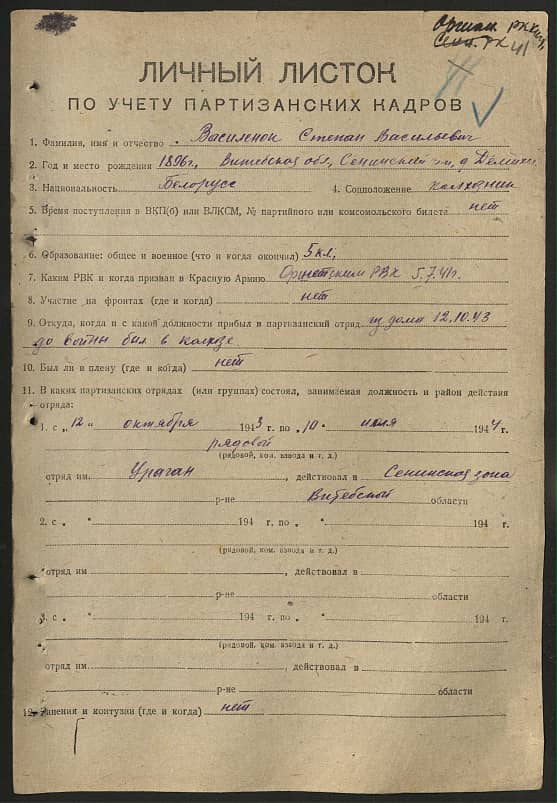 Оршан. РКк
Сенн. РК 41
ЛИЧНЫЙ ЛИСТОК
ПО УЧЕТУ ПАРТИЗАНСКИХ КАДРОВ
1. Фамилия, имя и отчество Василенок Степан Васильевич
2. Год и место рождения 1896г, Витебская обл, Сенинский д.
3. Национальность Белорусс 4. Соцположение колхозник
5. Время поступления в ВКП(б) или ВЛКСМ, № партийного или комсомольского билета нет
6. Образование: общее и военное (что и когда окончил) 5 кл,
7. Каким РВК и когда призван в Красную Армию Оршетским РВК 5.7.41г.
8. Участие на фронтах (где и когда) нет
9. Откуда, когда и с какой должности прибыл в партизанский отряд из дома 12.10.43
до войны был в колхозе
10. Был ли в плену (где и когда) нет
11. В каких партизанских отрядах (или группах) состоял, занимаемая должность и район действия
отряда:
1. с „12" октября 1943 г. по „10" июля 1944 г.
рядовой
(рядовой, ком. взвода и т. д.)
отряд им. Ураган, действовал в Сенинская зона
р-не Витебской области
2. с „ " 194 г. по „ " 194 г.
(рядовой, ком. взвода и т. д.)
отряд им , действовал в
р-не области
3. с „ " 194 г. по „ " 194 г.
(рядовой, ком. взвода и т. д.)
отряд им. , действовал в
р-не области
12. Ранения и контузии (где и когда) нет